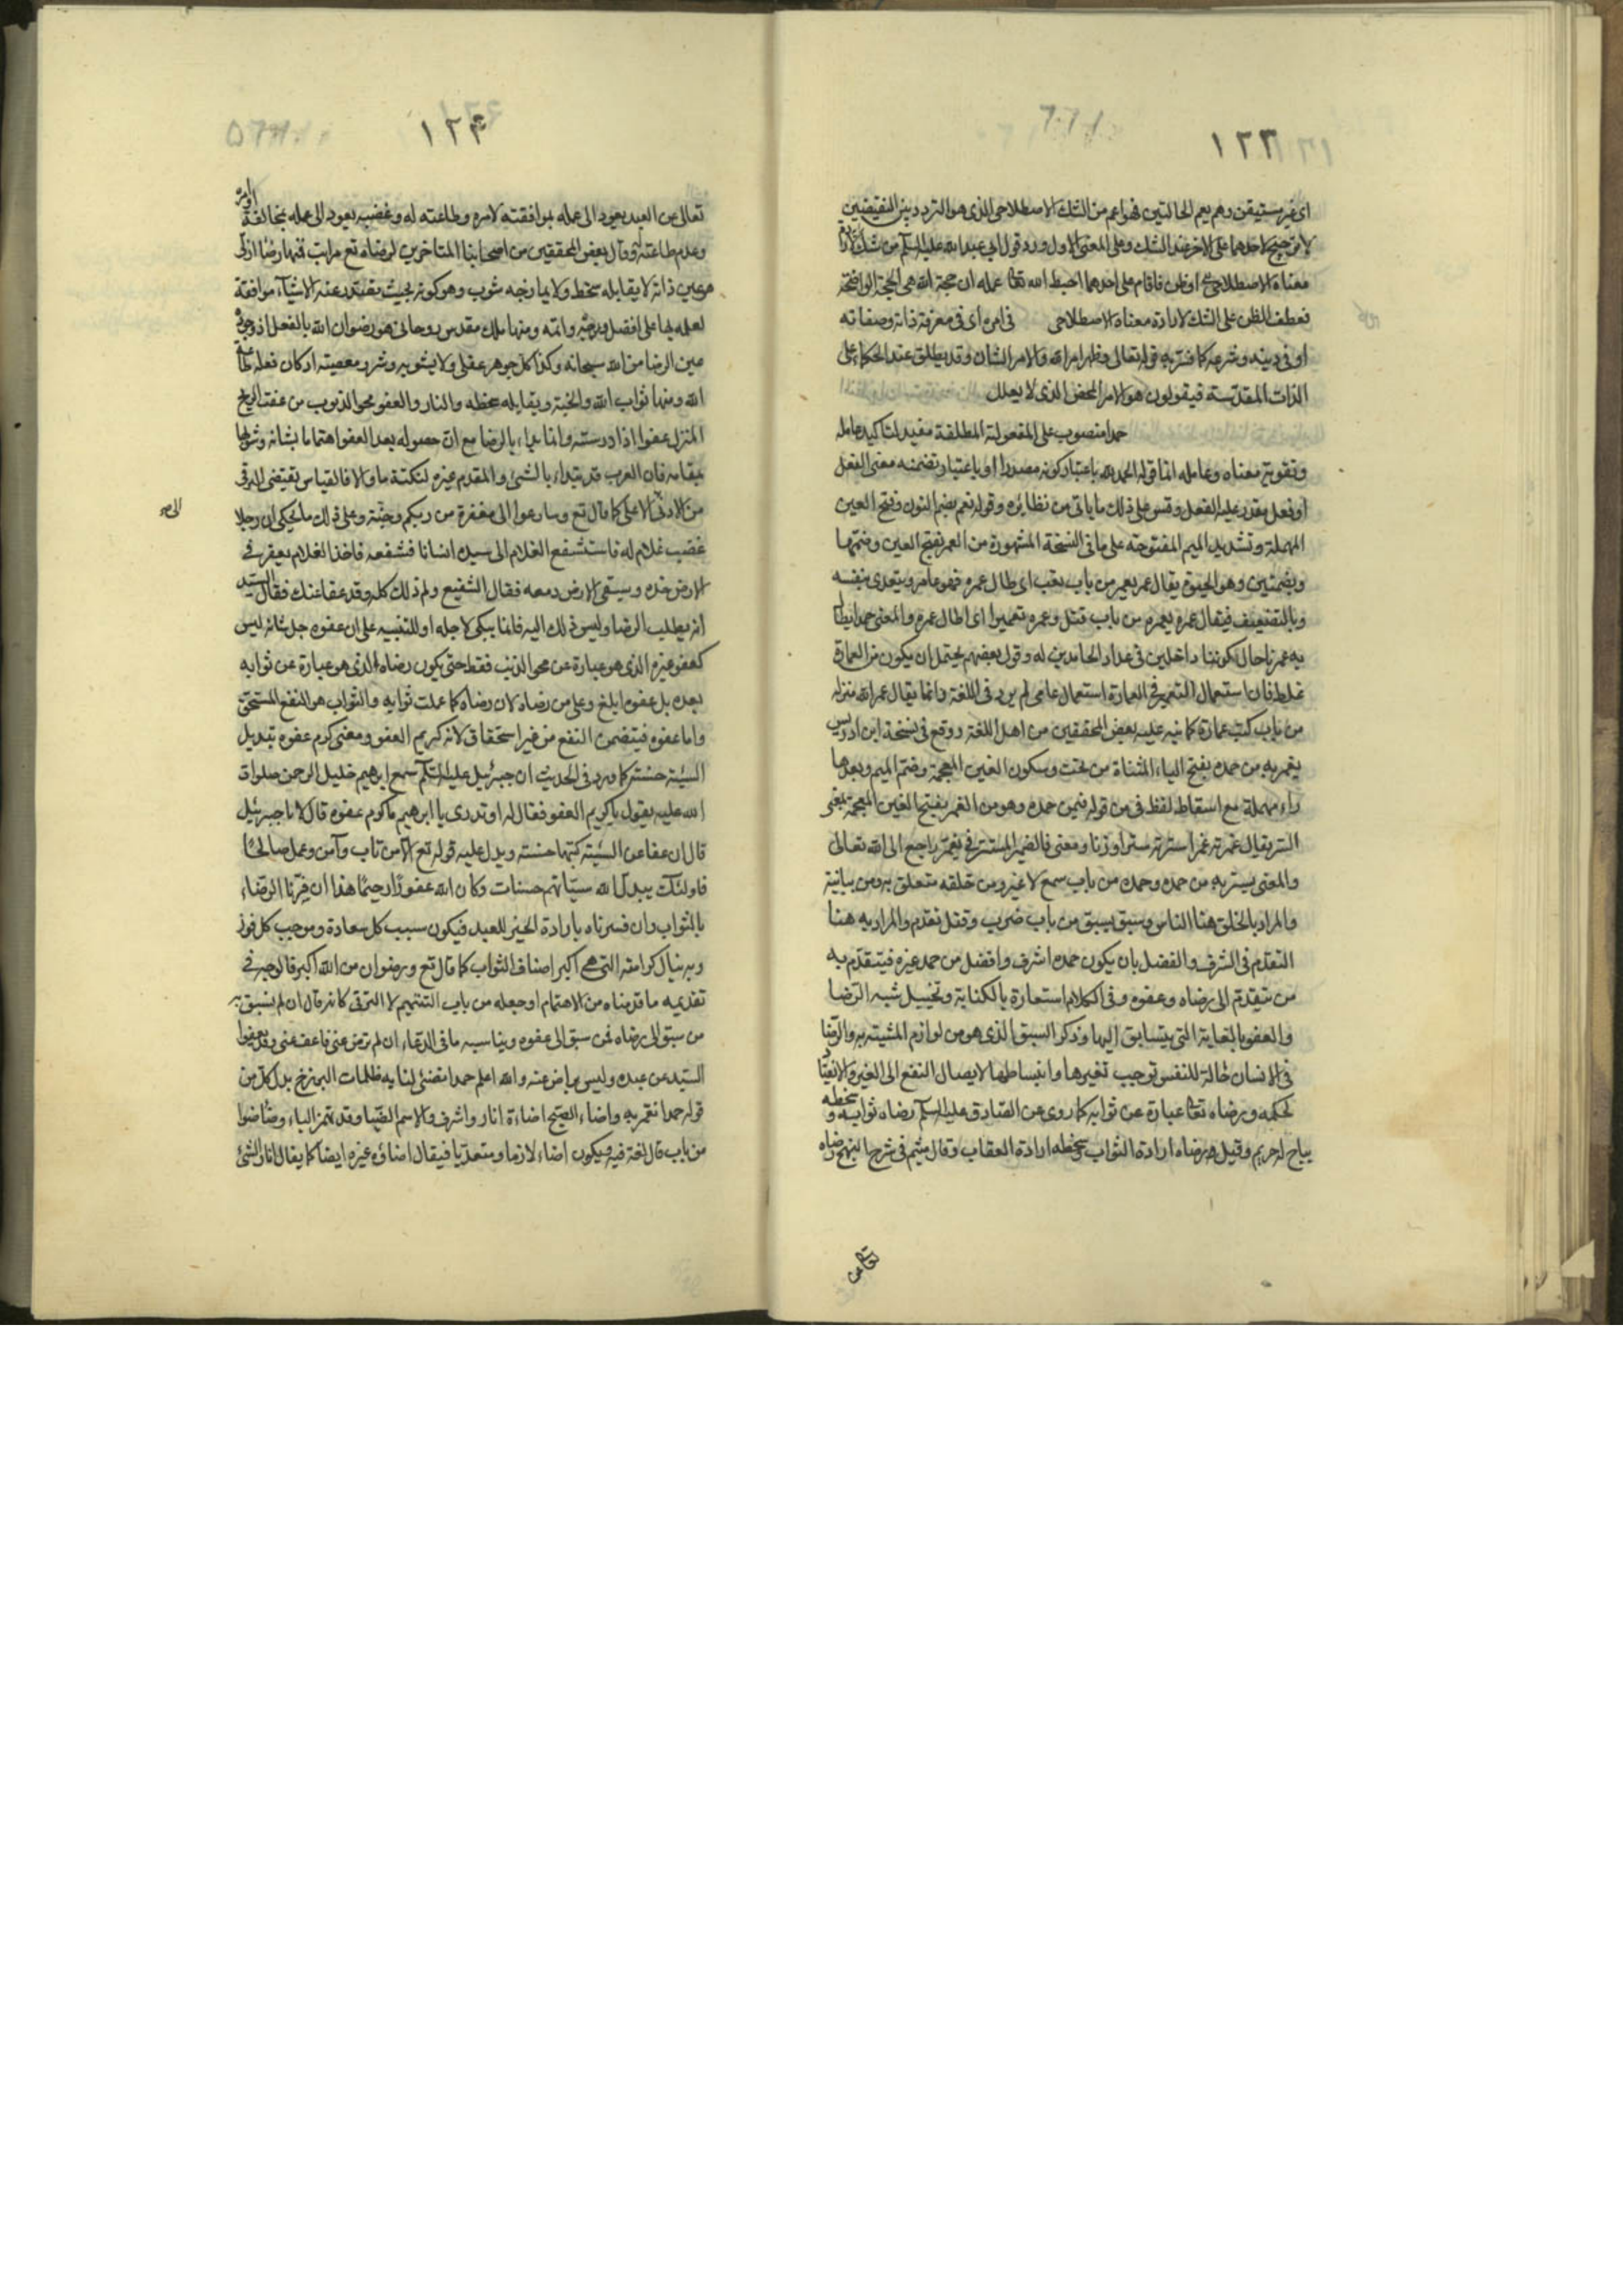 ١٢٣
اى غير مستيقن وهم يعم الحالتين فهو اعم من الشك الاصطلاحى الذى هو التردد بين النقيضين
لا ترجيح لاحدهما على الاخر عند الشك وعلى المعنى الاول ورد قول ابى عبد الله عليه السلم من شك
معناه الاصطلاحى او ظن فاقام على احدهما احبط الله تعا عمله ان حجة الله هى الحجة الواضحة
فعطف الظن على الشك لارادة معناه الاصطلاحى فى امره اى فى معرفة ذاته وصفاته
او فى دينه وشرعه كما فسر به قوله تعالى وظهر امر الله والامر الشان وقد يطلق عند الحكماء على
الذات المقدسة فيقولون هو الامر المحض الذى لا يعلل
حمدا منصوب على المفعولية المطلقة مفيد لتاكيد عامله
وتقوية معناه وعامله اما قوله الحمد لله باعتبار كونه مصدرا او باعتبار تضمنه معنى الفعل
او فعل مقدر عليه الفعل وقس على ذلك ما ياتى من نظائره وقوله نعمر بضم النون وفتح العين
المهملة وتشديد الميم المفتوحة على ما فى النسخة المشهورة من العمر بفتح العين وضمها
وبضمتين وهو الحيوة يقال عمر يعمر من باب تعب اى طال عمره فهو عامر ويتعدى بنفسه
وبالتضعيف فيقال عمره يعمره من باب قتل وعمره تعميرا اى اطال عمره والمعنى حمدا يطال
به عمرنا حال كوننا داخلين فى عداد الحامدين له وقول بعضهم يحتمل ان يكون من العمارة
غلط فان استعمال التعمير فى العمارة استعمال عامى لم يرد فى اللغة وانما يقال عمر الله منزله
من باب كتب عمارة كما نبه عليه بعض المحققين من اهل اللغة ووقع فى نسخة ابن ادريس
يغمر به من حمده بفتح الياء المثناة من تحت وسكون الغين المعجمة وضم الميم وبعدها
راء مهملة مع اسقاط لفظ فى من قوله فيمن حمده وهو من الغمر بفتح الغين المعجمة بمعنى
الستر يقال غمرته غمرا سترته سترا وزنا ومعنى فالضمير المستتر فى يغمر راجع الى الله تعالى
والمعنى يستر به من حمده وحمده من باب سمع لا غير ومن خلقه متعلق به ومن بيانية
والمراد بالخلق هنا الناس وسبق يسبق من باب ضرب وقتل تقدم والمراد به هنا
التقدم فى الشرف والفضل بان يكون حمده اشرف وافضل من حمد غيره فيتقدم به
من يتقدم الى رضاه وعفوه وفى الكلام استعارة بالكناية وتخييل شبه الرضا
والعفو بالغاية التى يتسابق اليها وذكر السبق الذى هو من لوازم المشبه به والرضا
فى الانسان حالة للنفس توجب تغيرها وانبساطها لايصال النفع الى الغير والانقياد
لحكمه ورضاه تعا عبارة عن ثوابه كما روى عن الصادق عليه السلم رضاه ثوابه وسخطه
وقيل رضاه ارادة الثواب وسخطه ارادة العقاب وقال ميثم فى شرح النهج رضاه
تعالى عن
١٢٤
تعالى عن العبد يعود الى علمه بموافقته لامره وطاعته له وغضبه يعود الى علمه بمخالفة اوامره
وعدم طاعته وقال بعض المحققين من اصحابنا المتاخرين لرضاه تع مراتب فمنها رضا ازلى
هو عين ذاته لا يقابله سخط ولا يمازجه شوب وهو كونه بحيث يصدر عنه الاشياء موافقة
لعلمه بها على افضل وجه واتمه ومنها ملك مقدس روحانى هو رضوان الله بالفعل اذ وجوده
عين الرضا من الله سبحانه وكذا كل جوهر عقلى ولا يشوبه شر ومعصية اذ كان فعله طاعة
الله ومنها ثواب الله والجنة ويقابله سخطه والنار والعفو محو الذنوب من عفت الريح
المنزل عفوا اذا درسته وانما بداء بالرضا مع ان حصوله بعد العفو اهتماما بشانه
مقامه فان العرب قد يبتداء بالشئ والمقدم غيره لنكتة ما والا فالقياس يقتضى الترقى
من الادنى الى الاعلى كما قال تع وسارعوا الى مغفرة من ربكم وجنة وعلى ذلك ما يحكى ان رجلا
الى صح
غضب غلام له فاستشفع الغلام الى سيده انسانا فشفعه فاخذ الغلام يعفر فى
الارض خده ويسقى الارض دمعه فقال الشفيع ولم ذلك كله وقد عفا عنك فقال السيد
انه يطلب الرضا وليس ذلك اليه فانما يبكى لاجله او للتنبيه على ان عفوه جل شانه ليس
كعفو غيره الذى هو عبارة عن محو الذنب فقط حتى يكون رضاه الذى هو عبارة عن ثوابه
بعده بل عفوه ابلغ واعلى من رضاه لان رضاه كما علمت ثوابه والثواب هو النفع المستحق
واما عفوه فيتضمن النفع من غير استحقاق لانه كريم العفو ومعنى كرم عفوه تبديل
السيئة حسنة كما ورد فى الحديث ان جبرئيل عليه السلم سمع ابرهيم خليل الرحمن صلوات
الله عليه يقول يا كريم العفو فقال له او تدرى يا ابرهيم ما كرم عفوه قال لا يا جبرئيل
قال ان عفا عن السيئة كتبها حسنة ويدل عليه قوله تع الا من تاب وآمن وعمل صالحا
فاولئك يبدل الله سيئاتهم حسنات وكان الله غفورا رحيما هذا ان فسرنا الرضاء
بالثواب وان فسرناه بارادة الخير للعبد فيكون سبب كل سعادة وموجب كل فوز
وبه ينال كرامته التى هى اكبر اصناف الثواب كما قال تع ورضوان من الله اكبر فالوجه فى
تقديمه ما قدمناه من الاهتمام او جعله من باب التتميم لا الترقى كانه قال ان لم نسبق به
من سبق الى رضاه فمن سبق الى عفوه ويناسبه ما فى الدعاء ان لم ترض عنى فاعف عنى فقد يعفوا
السيد عن عبده وليس براض عنه والله اعلم حمدا تضئ لنا به ظلمات البرزخ بدل كل من
قوله حمدا نعمر به واضاء الصبح اضاءة انار واشرق والاسم الضياء وقد تهمز الياء وضاء ضوا
من باب قال لغة فيه ويكون اضاء لازما ومتعديا فيقال اضاءه غيره ايضا كما يقال انار الشئ